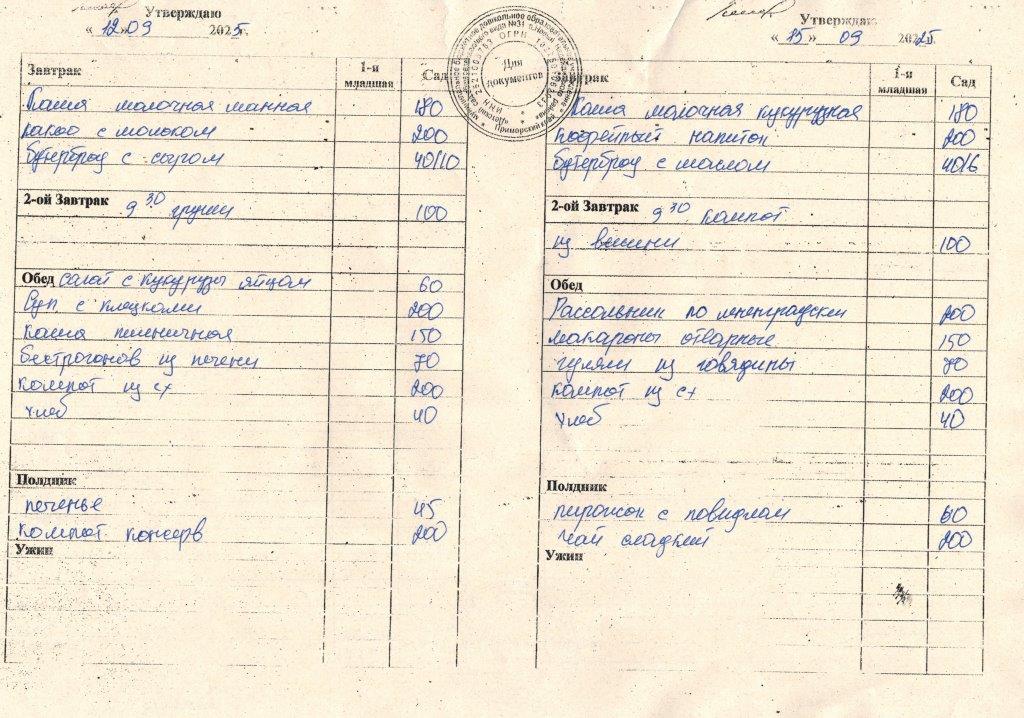 Утверждаю
« 12 » 09 2025г.
Завтрак 1-я младшая Сад
Каша молочная манная 180
какао с молоком 200
бутерброд с сыром 40/10
2-ой Завтрак 9 30 груши 100
Обед салат с кукурузы яйцом 60
Суп с клецками 200
каша пшеничная 150
бестроганов из печени 70
компот из сх 200
хлеб 40
Полдник
печенье 45
компот консерв 200
Ужин
Для документов
Утверждаю
« 15 » 09 2025г.
Завтрак 1-я младшая Сад
Каша молочная кукурузная 180
кофейный напиток 200
бутерброд с маслом 40/6
2-ой Завтрак 9 30 компот
из вишни 100
Обед
Рассольник по ленинградски 200
макароны отварные 150
гуляш из говядины 70
компот из сх 200
хлеб 40
Полдник
пирожок с повидлом 60
чай сладкий 200
Ужин